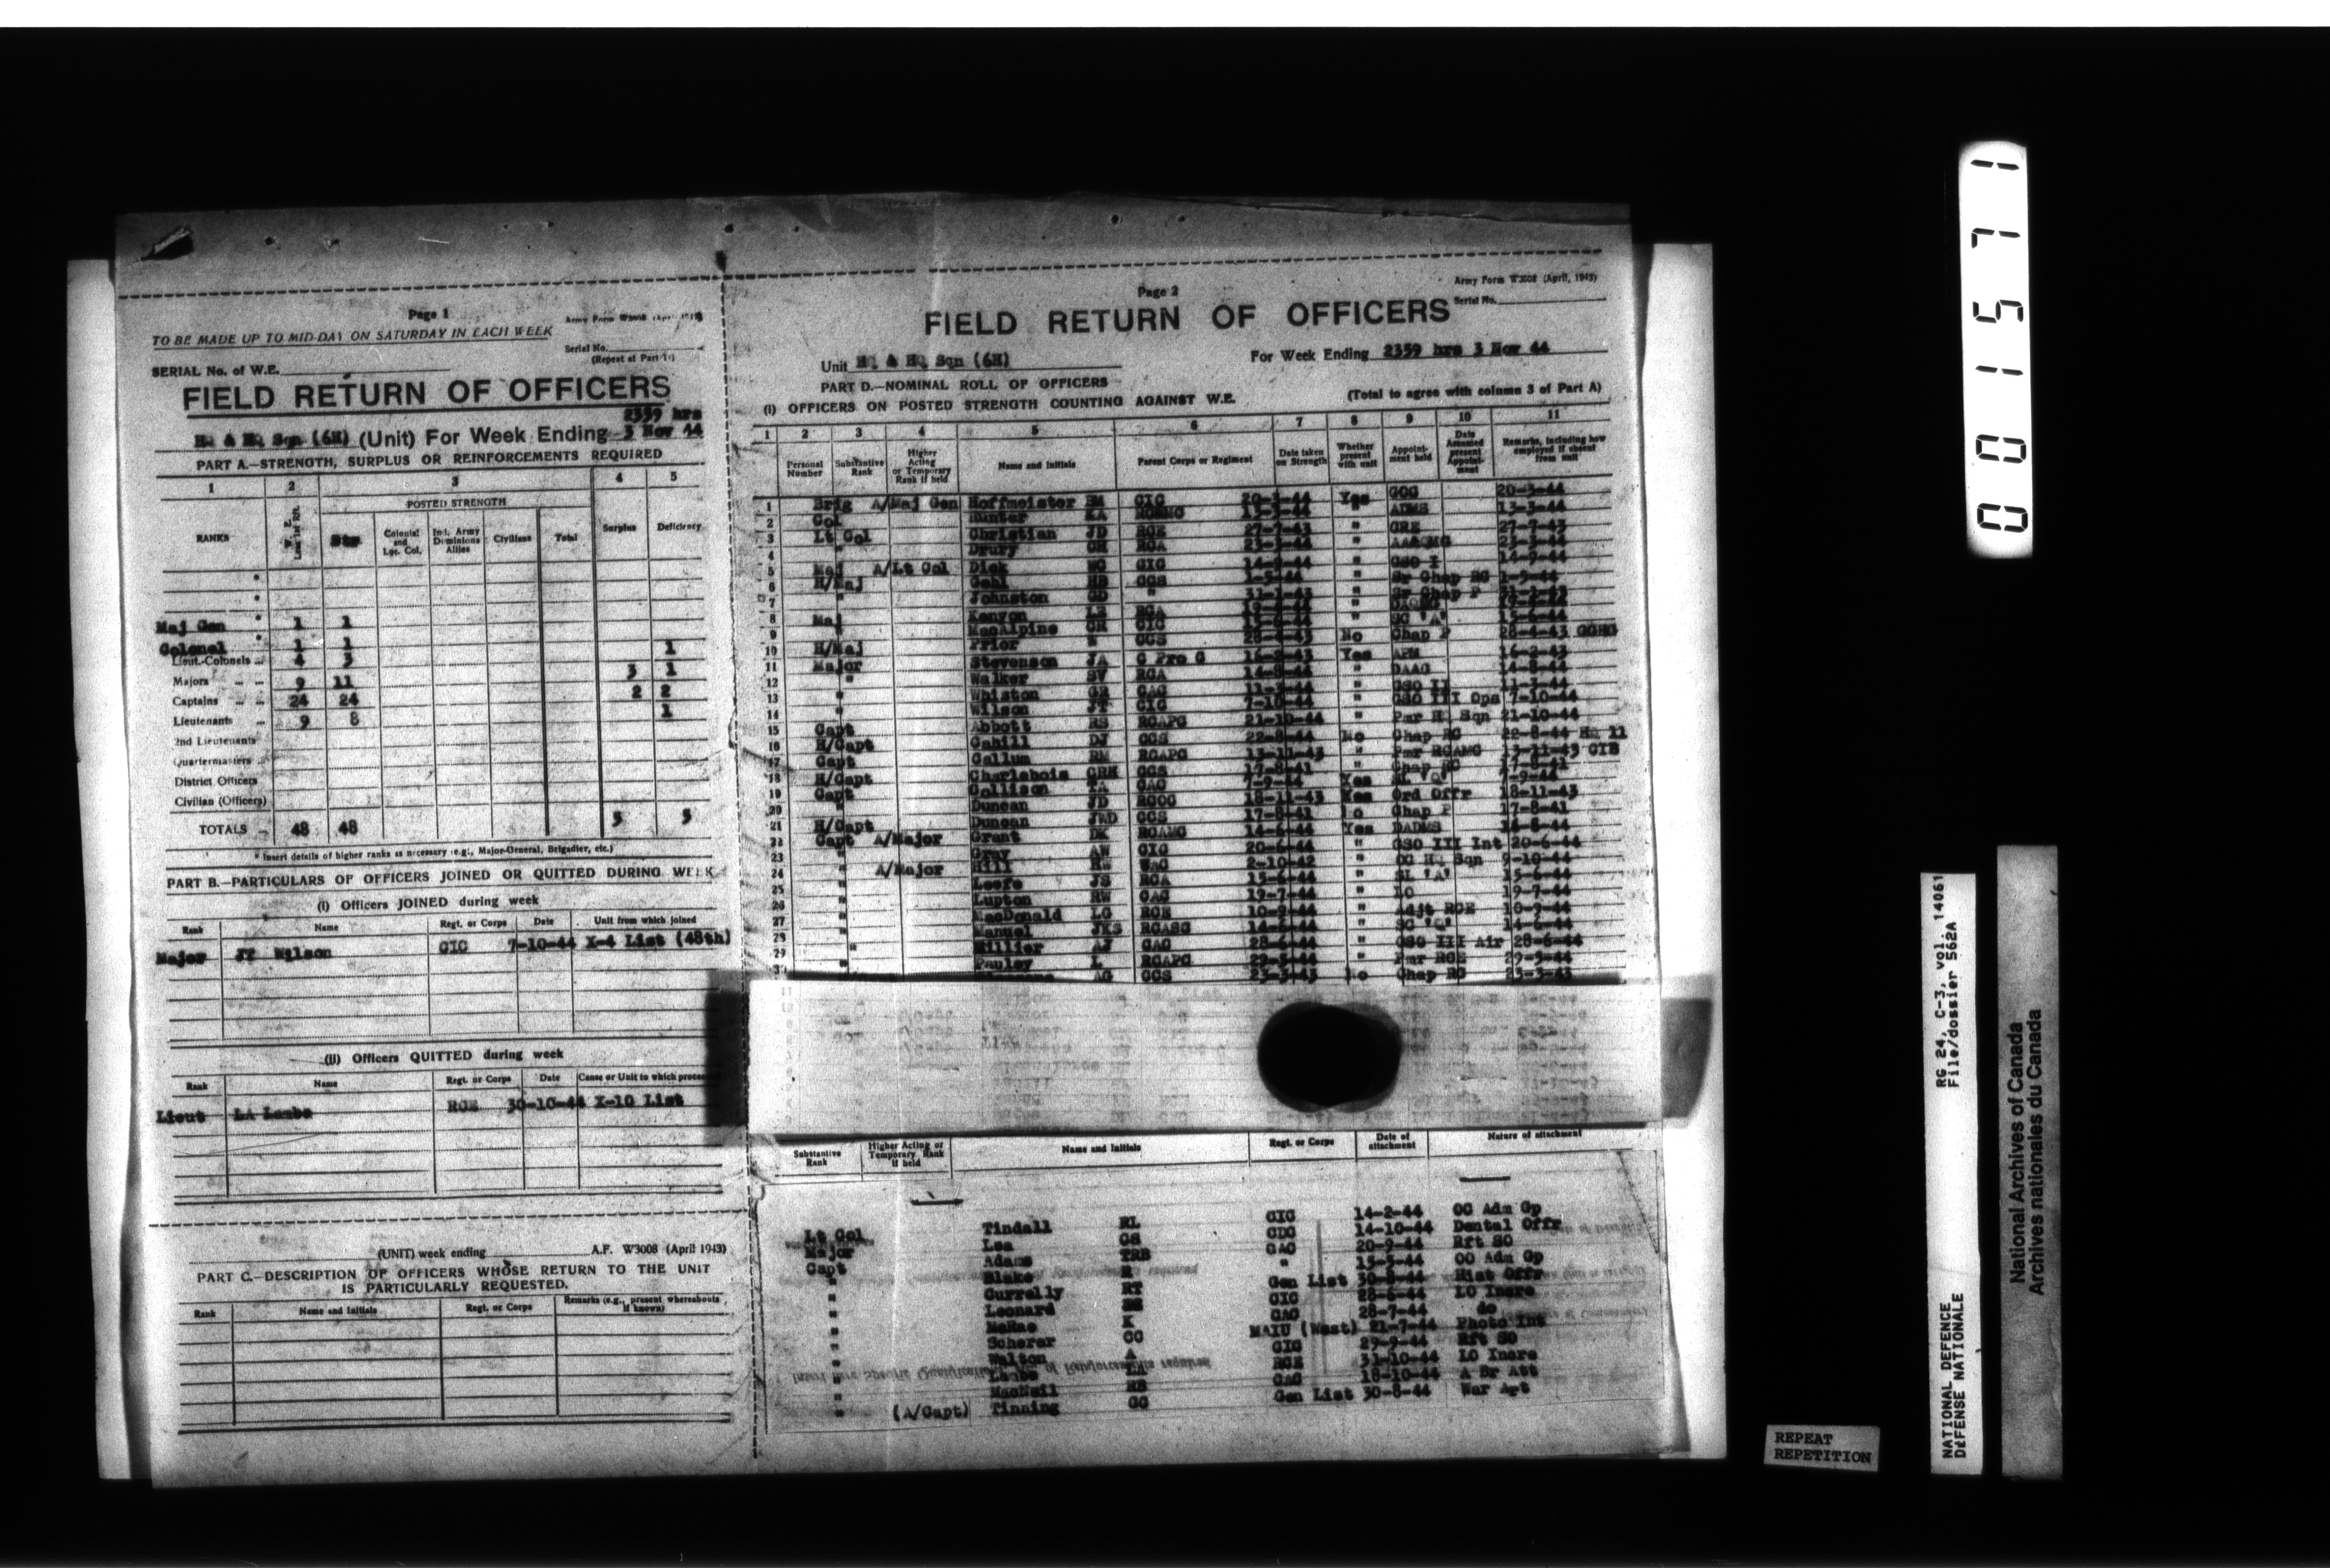 Page 1
Army Form W3008 (April 1943)
TO BE MADE UP TO MID-DAY ON SATURDAY IN EACH WEEK
Serial No.
(Repeat at Part
SERIAL No. of W.E.
FIELD RETURN OF OFFICERS
2359 hrs
HQ & HQ Sqn (6H) (Unit) For Week Ending 3 Nov 44
PART A.—STRENGTH, SURPLUS OR REINFORCEMENTS REQUIRED
1 2 3 4 5
POSTED STRENGTH
RANKS W. E. Str Colonial and Loc. Col. Ind. Army Dominions Allies Civilians Total Surplus Deficiency
Maj Gen 1 1
Colonel 1 1
Lieut.-Colonels 4 3 1
Majors 9 11 3 1
Captains 24 24 2 2
Lieutenants 9 8 1
2nd Lieutenants
Quartermasters
District Officers
Civilian (Officers)
TOTALS 48 48 5 5
* Insert details of higher ranks as necessary (e.g., Major-General, Brigadier, etc.)
PART B.—PARTICULARS OF OFFICERS JOINED OR QUITTED DURING WEEK
(i) Officers JOINED during week
Rank Name Regt. or Corps Date Unit from which joined
Major JT Wilson CIC 7-10-44 X-4 List (48th)
(ii) Officers QUITTED during week
Rank Name Regt. or Corps Date Cause or Unit to which
Lieut LA Lambe RCE 30-10-44 X-10 List
(UNIT) week ending A.F. W3008 (April 1943)
PART C.—DESCRIPTION OF OFFICERS WHOSE RETURN TO THE UNIT
IS PARTICULARLY REQUESTED.
Rank Name and Initials Regt. or Corps Remarks (e.g., present whereabouts if known)
Page 2
Army Form W3008 (April, 1943)
Serial No.
FIELD RETURN OF OFFICERS
Unit HQ & HQ Sqn (6H) For Week Ending 2359 hrs 3 Nov 44
PART D.—NOMINAL ROLL OF OFFICERS
(i) OFFICERS ON POSTED STRENGTH COUNTING AGAINST W.E. (Total to agree with column 3 of Part A)
1 2 3 4 5 6 7 8 9 10 11
Personal Number Substantive Rank Higher Acting or Temporary Rank if held Name and Initials Parent Corps or Regiment Date taken on Strength Whether present with unit Appointment held Date Assumed present Appointment Remarks, including how employed if absent from unit
1 Brig A/Maj Gen Hoffmeister BM CIC 20-3-44 Yes GOC 20-3-44
2 Col Hunter KA RCAMC 13-3-44 " ADMS 13-3-44
3 Lt Col Christian JD RCE 27-7-43 " CRE 27-7-43
4 " Drury CH RCA 23-3-44 " AA&QMG 23-3-44
5 Maj A/Lt Col Dick WG CIC 14-9-44 " GSO I 14-9-44
6 H/Maj Gehl HB CCS 1-5-44 " Sr Chap RC 1-5-44
7 " Johnston GD " 31-1-43 " Sr Chap P 31-1-43
8 Maj Kenyon LE RCA 19-6-44 " DAQMG
9 " MacAlpine GR CIC 15-6-44 " SC "A" 15-6-44
10 H/Maj Prior CCS 28-4-43 No Chap P 28-4-43 GGHG
11 Major Stevenson JA C Pro C 16-2-43 Yes APM 16-2-43
12 " Walker SV RCA 14-8-44 " DAAG 14-8-44
13 " Whiston GR CAC 11-3-44 " GSO II 11-3-44
14 " Wilson JT CIC 7-10-44 " GSO III Ops 7-10-44
15 Capt Abbott RS RCAPC 21-10-44 " Pmr HQ Sqn 21-10-44
16 H/Capt Cahill DJ CCS 22-8-44 No Chap RC 22-8-44 HQ 11
17 Capt Callum RM RCAPC 13-11-43 " Pmr RCAMC 13-11-43 CIB
18 H/Capt Charlebois CRH CCS 17-8-41 " Chap RC 17-8-41
19 Capt Collison TA CAC 7-9-44 Yes SL "Q" 7-9-44
20 " Duncan JD RCOC 18-11-43 Yes Ord Offr 18-11-43
21 H/Capt Duncan JWD CCS 17-8-41 No Chap P 17-8-41
22 Capt A/Major Grant DK RCAMC 14-6-44 Yes DADMS 14-6-44
23 " Gray AW CIC 20-6-44 " GSO III Int 20-6-44
24 " A/Major Hill CAC 2-10-42 " OC HQ Sqn 9-10-44
25 " Leefe JS RCA 15-6-44 " SL "A" 15-6-44
26 " Lupton RW CAC 19-7-44 " LO 19-7-44
27 " MacDonald LG RCE 10-9-44 " Adjt RCE 10-9-44
28 " Manuel JKS RCASC 14-6-44 " SC "Q" 14-6-44
29 " Millier AJ CAC 28-6-44 " GSO III Air 28-6-44
30 " Pauley L RCAPC 29-5-44 " Pmr RCE 29-5-44
AG CCS 23-3-43 No Chap RC 23-3-43
Substantive Rank Higher Acting or Temporary Rank if held Name and Initials Regt. or Corps Date of attachment Nature of attachment
Lt Col Tindall RL CIC 14-2-44 OC Adm Gp
Major Lea GS CDC 14-10-44 Dental Offr
Capt Adams TRB CAC 20-9-44 Rft SO
" Blake R " 15-5-44 OO Adm Gp
" Currelly RT Gen List 30-8-44 Hist Offr
" Leonard CIC 28-6-44 LO Incre
" McRae K CAC 28-7-44 do
" Scherer CC MAIU (West) 21-7-44 Photo Int
" Walton A CIC 29-9-44 Rft SO
" Lambe LA RCE 31-10-44 LO Incre
" MacNeil HB CAC 18-10-44 A Br Att
" (A/Capt) Tinning GC Gen List 30-8-44 War Art
001571
RG 24, C-3, vol. 14061
File/dossier 562A
NATIONAL DEFENCE
DEFENSE NATIONALE
National Archives of Canada
Archives nationales du Canada
REPEAT
REPETITION